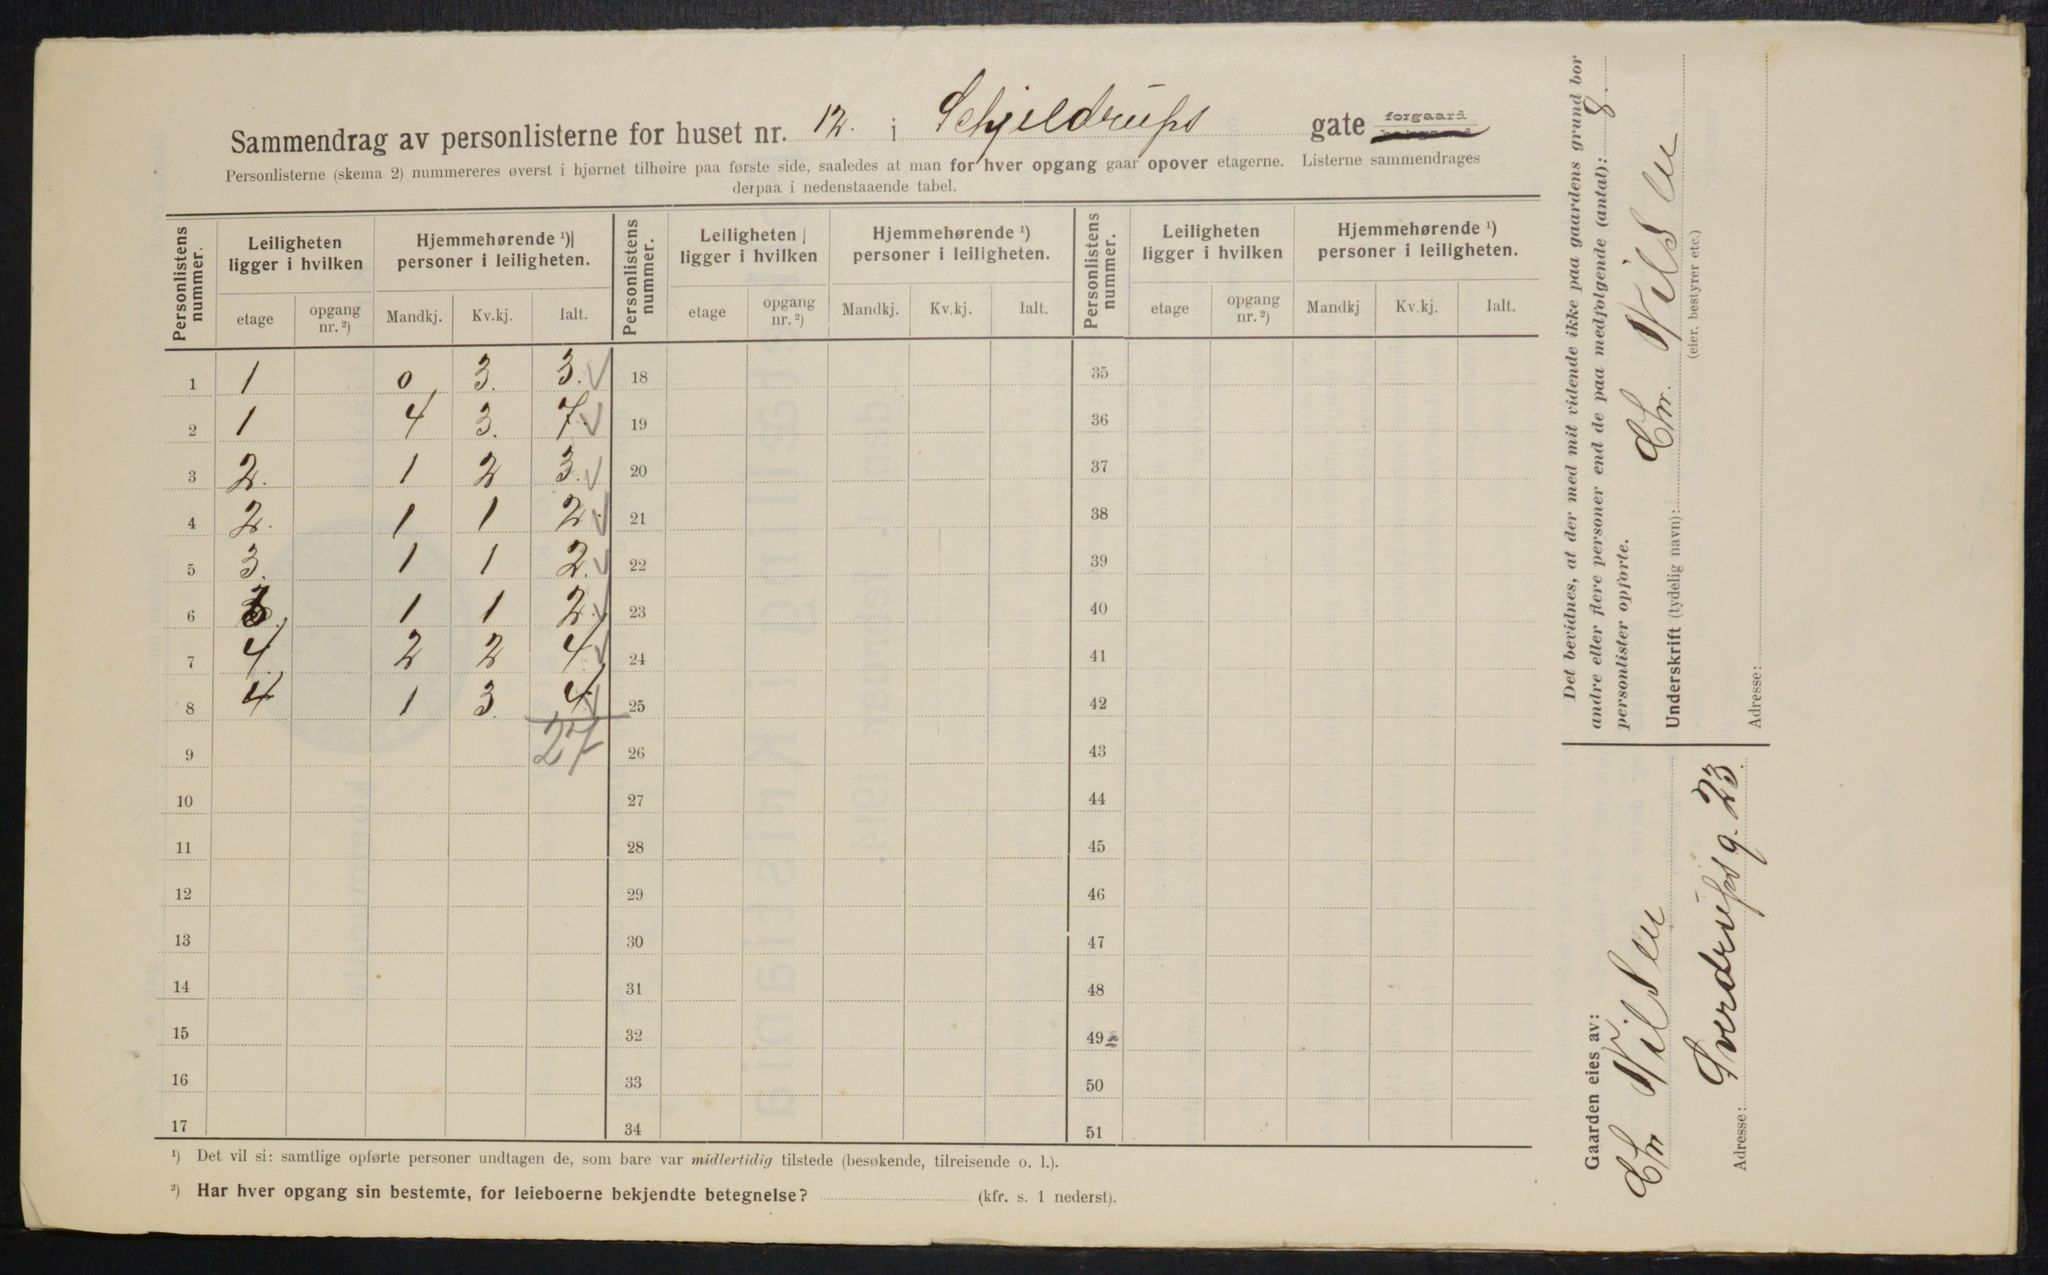 Sammendrag av personlisterne for huset nr. 12. i Schjeldrups gate forgaard bakgaard
Personlisterne (skema 2) nummereres øverst i hjørnet tilhøire paa første side, saaledes at man for hver opgang gaar opover etagerne. Listerne sammendrages
derpaa i nedenstaaende tabel.
Personlistens nummer. | Leiligheten ligger i hvilken | Hjemmehørende ¹) personer i leiligheten. | Personlistens nummer. | Leiligheten ligger i hvilken | Hjemmehørende ¹) personer i leiligheten. | Personlistens nummer. | Leiligheten ligger i hvilken | Hjemmehørende ¹) personer i leiligheten.
etage | opgang nr. ²) | Mandkj. | Kv.kj. | Ialt. | etage | opgang nr. ²) | Mandkj. | Kv.kj. | Ialt. | etage | opgang nr. ²) | Mandkj | Kv.kj. | Ialt.
1 1 0 3. 3. 18 35
2 1 4 3. 7. 19 36
3 2. 1 2 3. 20 37
4 2. 1 1 2. 21 38
5 3. 1 1 2. 22 39
6 3. 1 1 2. 23 40
7 4. 2 2 4. 24 41
8 4 1 3. 4. 25 42
9 27 26 43
10 27 44
11 28 45
12 29 46
13 30 47
14 31 48
15 32 49
16 33 50
17 34 51
¹) Det vil si: samtlige opførte personer undtagen de, som bare var midlertidig tilstede (besøkende, tilreisende o. l.).
²) Har hver opgang sin bestemte, for leieboerne bekjendte betegnelse? (kfr. s. 1 nederst).
Det bevidnes, at der med mit vidende ikke paa gaardens grund bor
andre eller flere personer end de paa medfølgende (antal): 8.
personlister opførte.
Underskrift (tydelig navn): Chr. Nilsen
(eier, bestyrer etc.)
Adresse:
Gaarden eies av:
Chr Nilsen
Adresse: Sverdrupsg. 23.